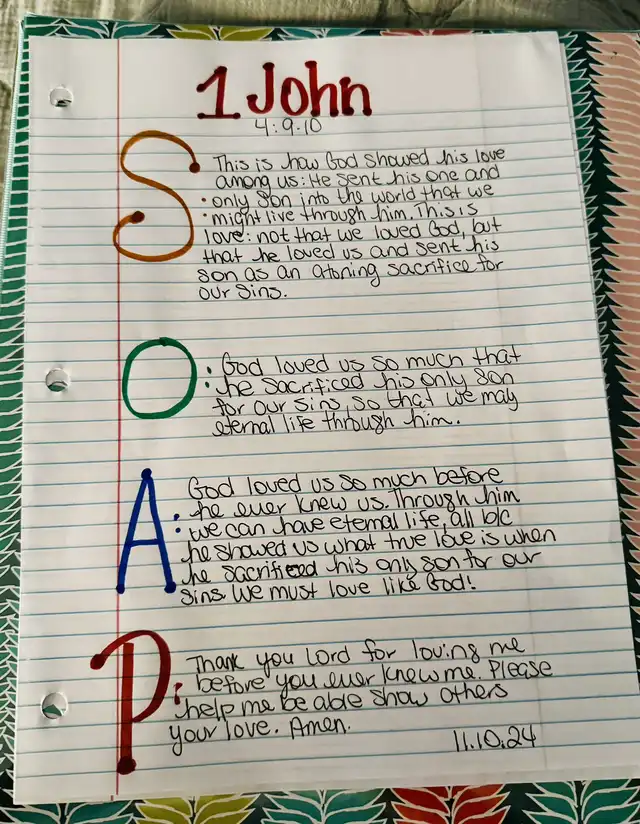 1 John
4:9-10
S : This is how God showed his love
among us: He sent his one and
only son into the world that we
might live through him. This is
love: not that we loved God, but
that he loved us and sent his
son as an atoning sacrifice for
our sins.
O : God loved us so much that
he sacrificed his only son
for our sins so that we may
eternal life through him.
A : God loved us so much before
he ever knew us. Through him
we can have eternal life, all b/c
he showed us what true love is when
he sacrificed his only son for our
sins. We must love like God!
P : Thank you Lord for loving me
before you ever knew me. Please
help me be able show others
your love. Amen.
11.10.24